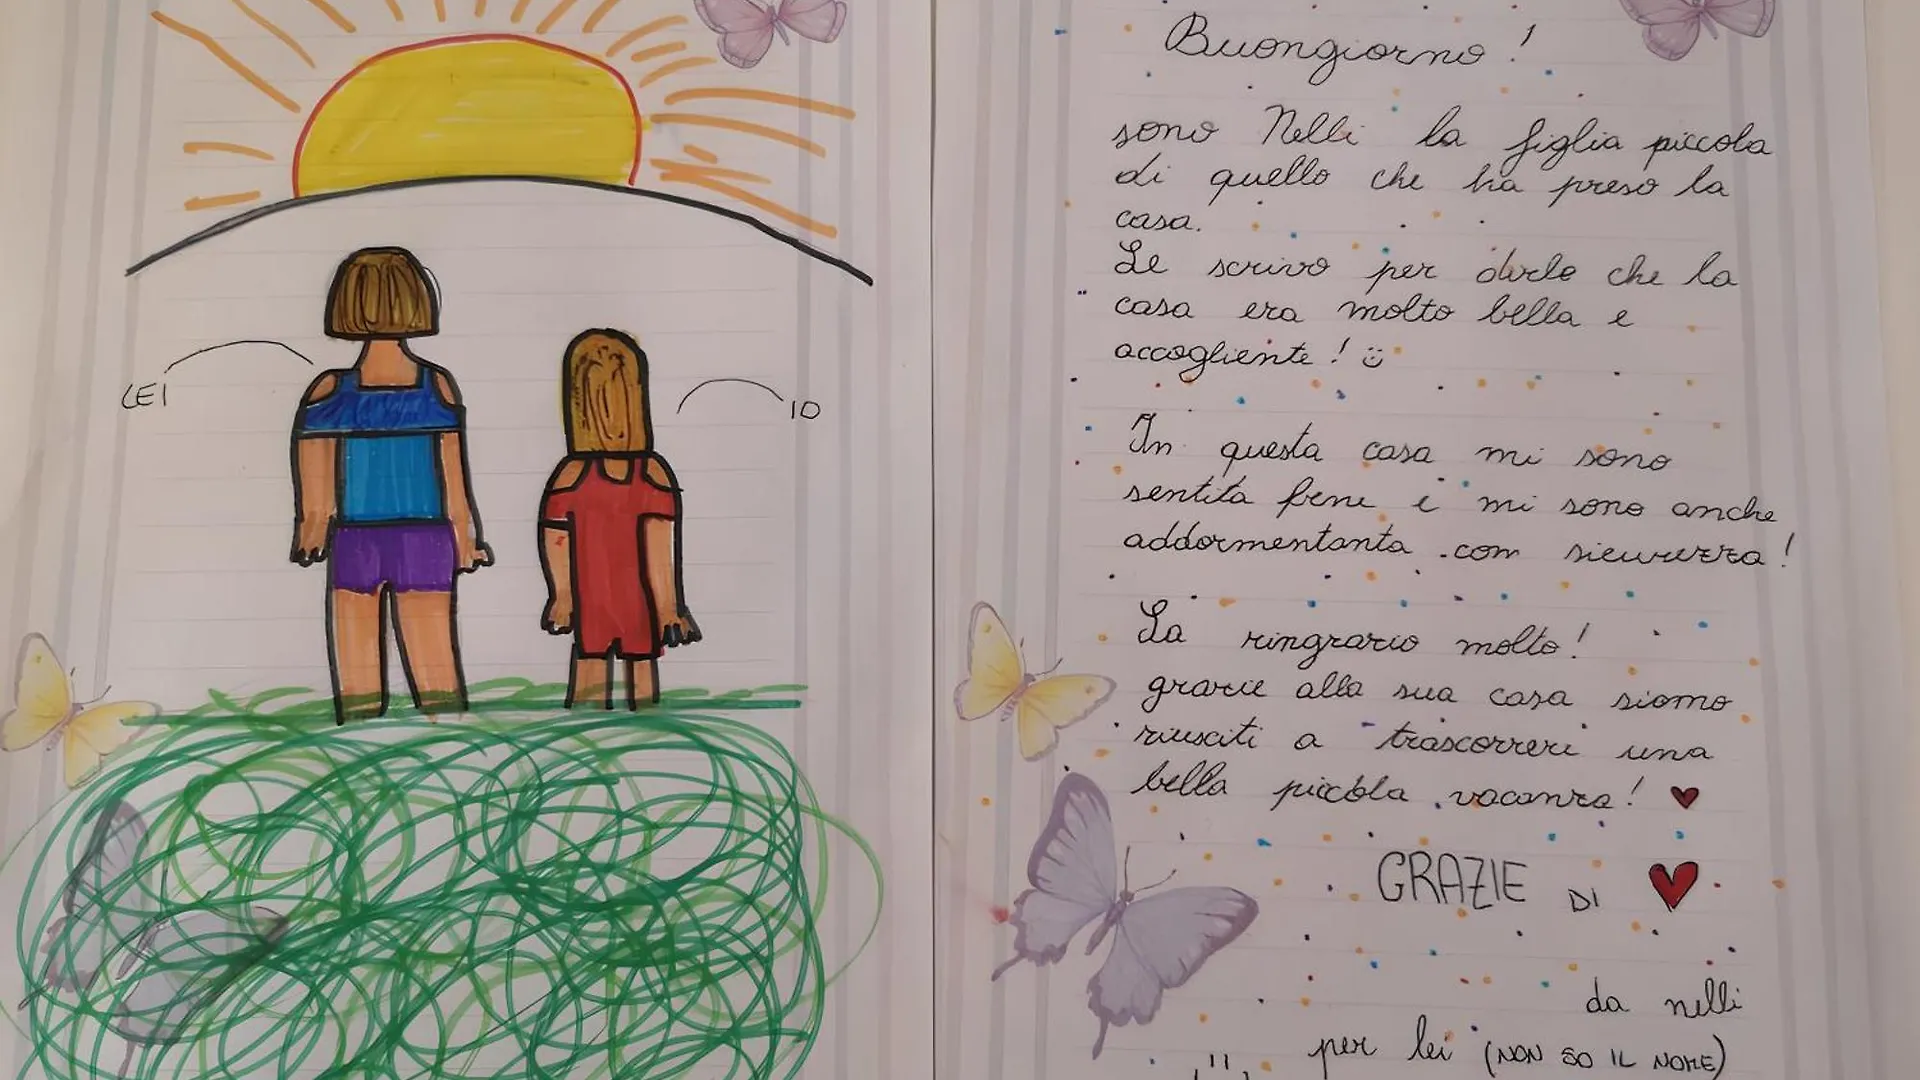 LEI
IO
Buongiorno!
sono Nelli la figlia piccola
di quello che ha preso la
casa.
Le scrivo per dirle che la
casa era molto bella e
accogliente! :)
In questa casa mi sono
sentita bene e mi sono anche
addormentanta con sicurezza!
La ringrazio molto!
grazie alla sua casa siamo
riusciti a trascorrere una
bella piccola vacanza! ♥
GRAZIE DI ♥
da nelli
per lei (NON SO IL NOME)